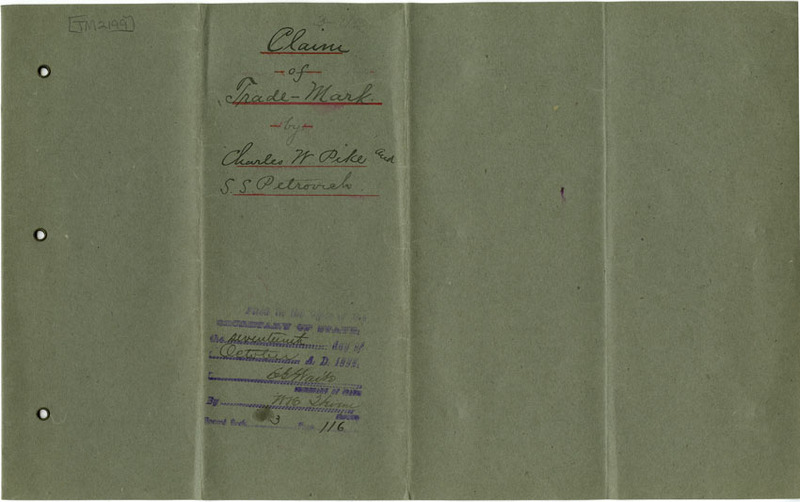 [TM2199]
Claim
of
Trade-Mark.
by
Charles W Pike and
S. S. Petrovich
FILED in the Office of the
SECRETARY OF STATE,
this seventeenth day of
October A. D. 1892.
SECRETARY OF STATE
By
DEPUTY
Record Book 3 Page 116